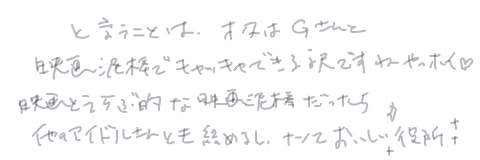 と言うことは、オタはGさんと
映画泥棒でキャッキャできる訳ですねーヤッホイ♡
映画とうらぶ的な映画泥棒だったら
他のアイドルさんとも絡めるし、なんておいしい役所